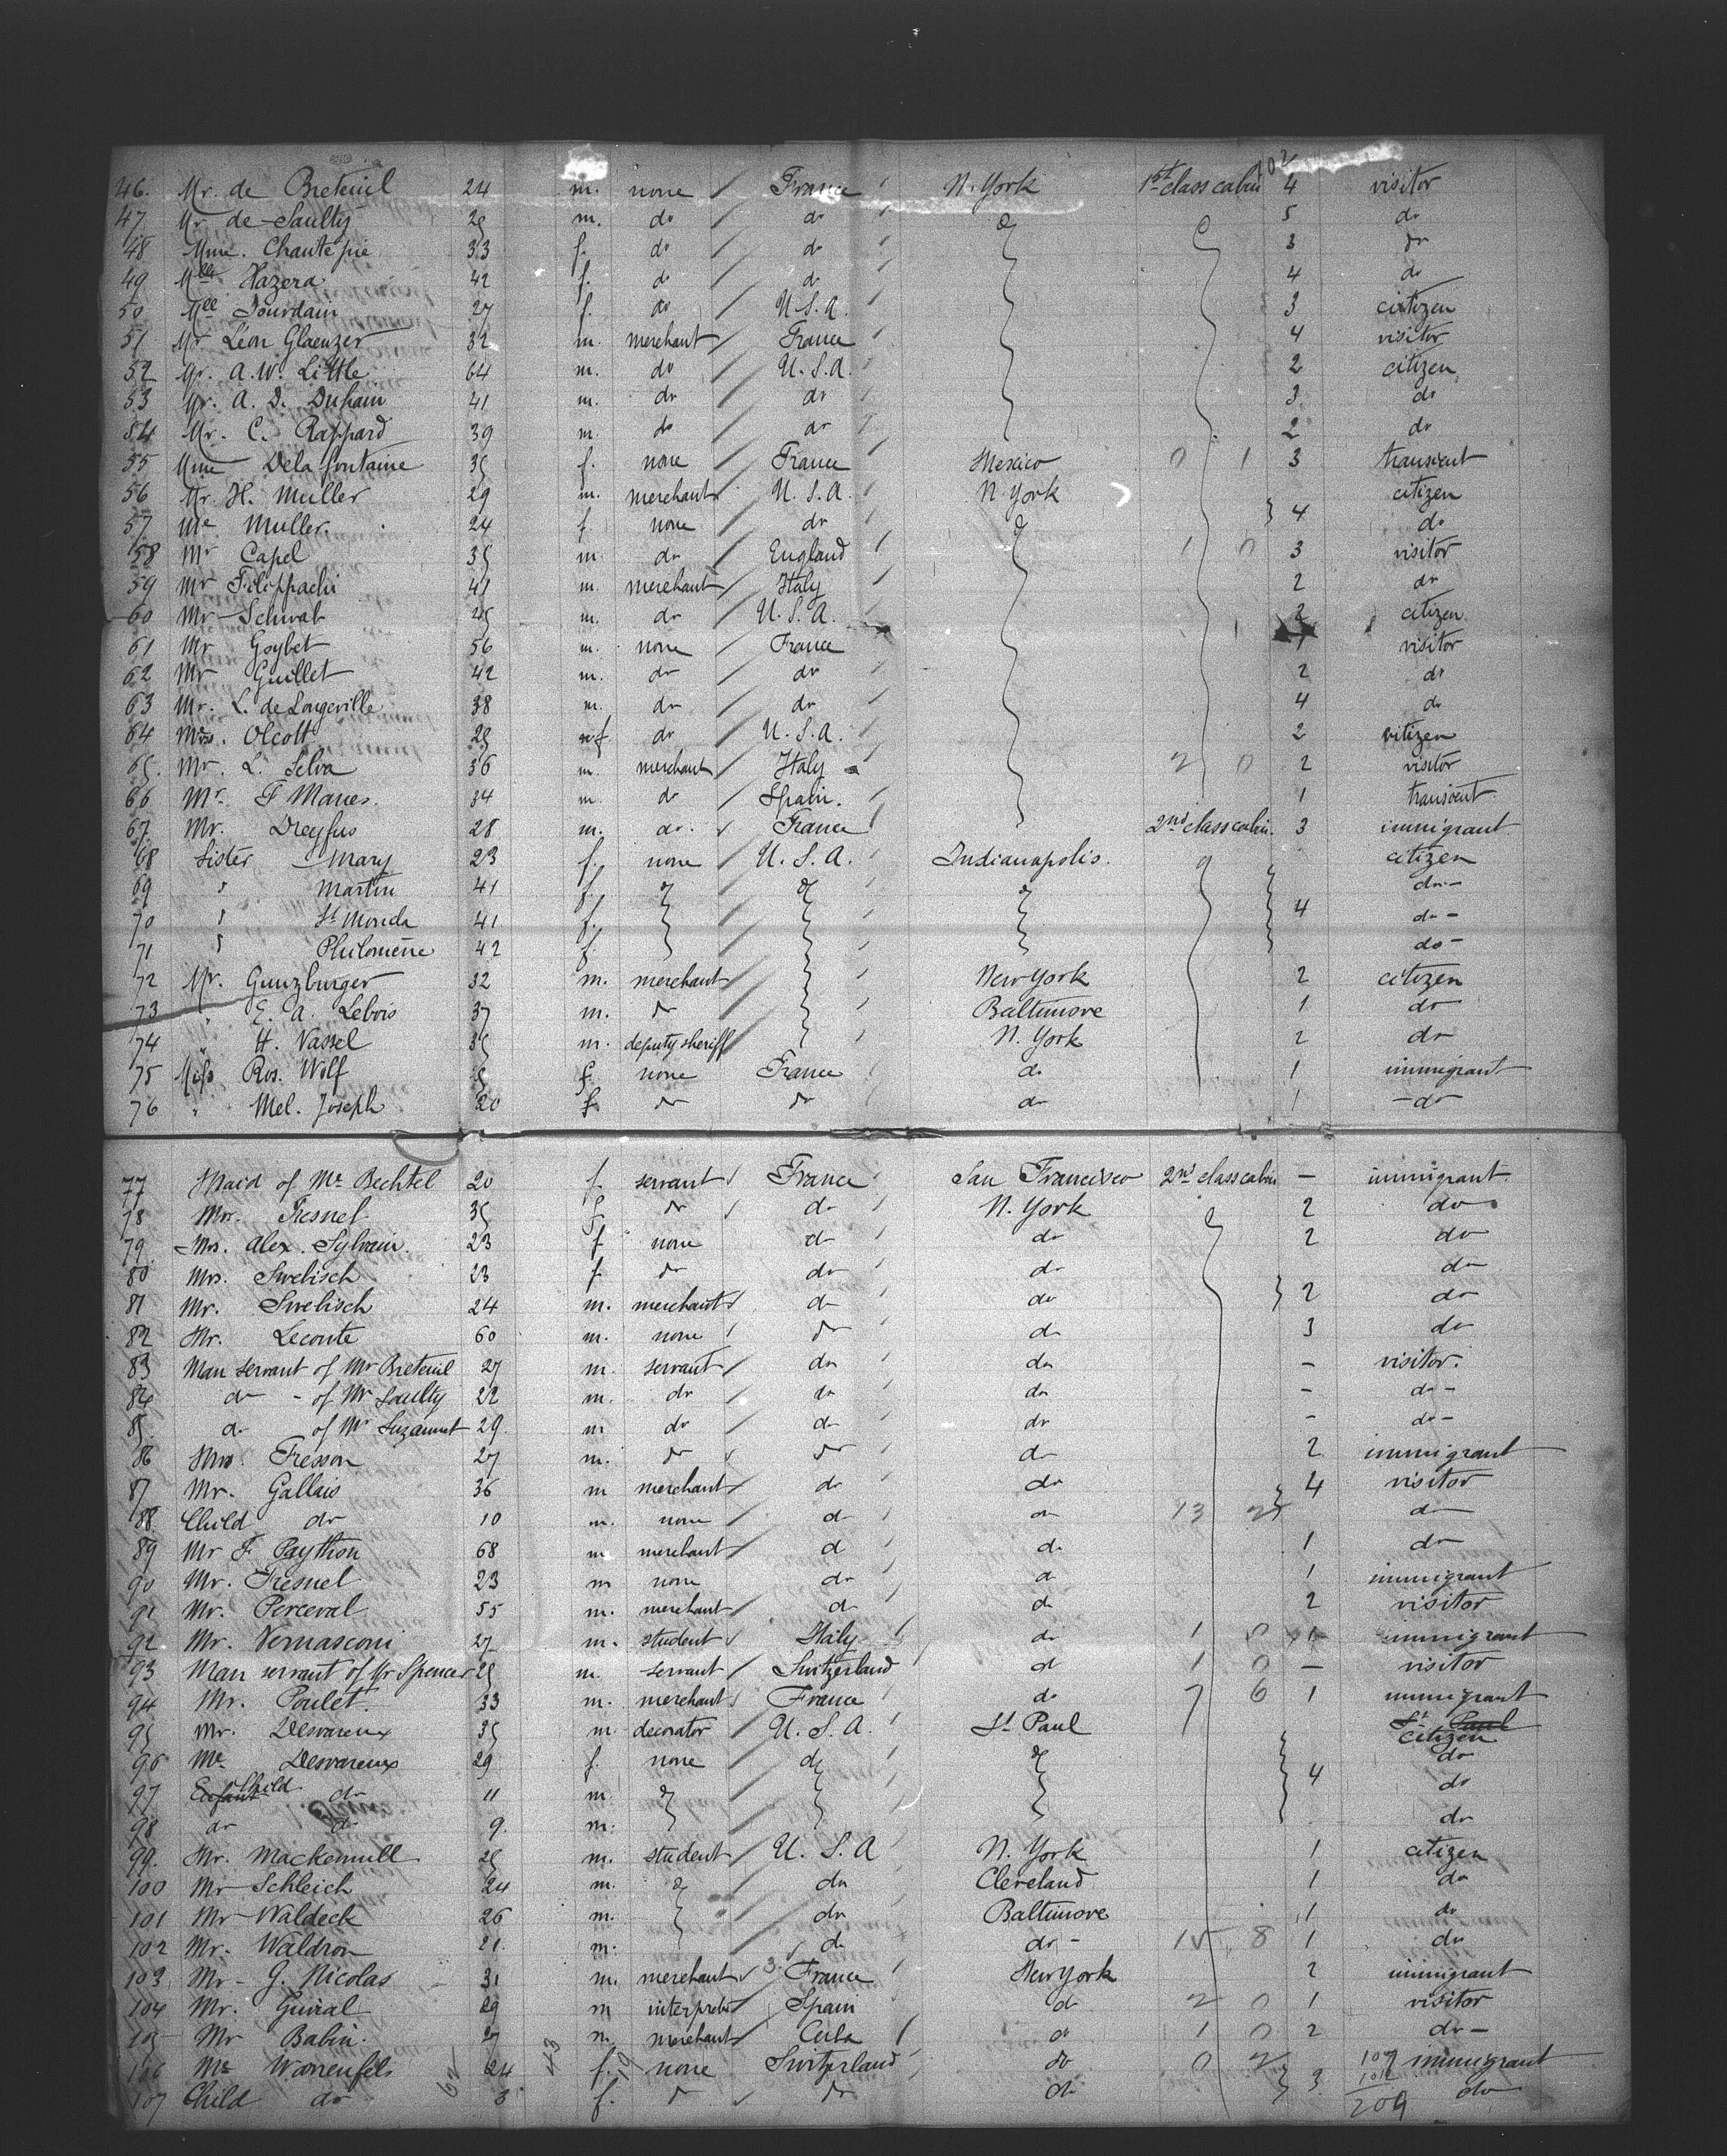 102
46. Mr. de Breteuil 24 m. none / France / N. York 1st class cabin 4 visitor
47 Mr de Saulty 25 m. do / do / 5 do
48 Mme. Chantepie 33 f. do / do / 3 do
49 Mlle Hazera 42 f. do / do / 4 do
50 Mlle Jourdain 27 f. do / U.S.A. / 3 citizen
51 Mr Léon Glaenzer 32 m. merchant / France / 4 visitor
52 Mr. A.W. Little 64 m. do / U.S.A. 2 citizen
53 Mr. A. D. Duhain 41 m. do / do / 3 do
54 Mr. C. Rappard 39 m. do / do 2 do
55 Mme Delafontaine 35 f. none / France / Mexico 0 1 3 transient
56 Mr. H. Muller 29 m. merchant U.S.A. / N. York citizen
57 Me Muller. 24 f. none / do / } 4 do
58 Mr Capel 35 m. do / England / 1 0 3 visitor
59 Mr Filippachi 41 m. merchant / Italy / 2 do
60 Mr Schwab 45 m. do / U.S.A. 2 citizen
61 Mr Goybet 56 m. none / France visitor
62 Mr Guillet 42 m. do / do / 2 do
63 Mr. L. de Longeville 38 m. do / do / 4 do
64 Mrs. Olcott 25 f. do / U.S.A. / 2 citizen
65. Mr. L. Selva 36 m. merchant / Italy 2 0 2 visitor
66 Mr. F Manes. 34 m. do / Spain. / 1 transient
67 Mr. Dreyfus 28 m. do. France / 2nd class cabin. 3 immigrant
68 Sister Mary 23 f. none / U.S.A. / Indianapolis. citizen
69 " Martin 41 f. do -
70 " St Monda 41 f. } 4 do -
71 " Philomène 42 f. do -
72 Mr. Gunzburger 32 m. merchant / New York 2 citizen
73 " E. A. Lebois 37 m. do / Baltimore 1 do
74 " H. Vassel 35 m. deputy sheriff / N. York 2 do
75 Miss Ros. Wolf f. none France / do 1 immigrant
76 " Mel. Joseph 20 f. do do / do 1 - do
77 Maid of Me Bechtel 20 f. servant France / San Francisco 2nd class cabin - immigrant
78 Mr. Fresnel 35 do do / N. York 2 do
79 Mrs. Alex. Sylvain. 23 f none do / do 2 do
80 Mrs. Swebisch 23 f. do do / do do
81 Mr. Swebisch 24 m. merchant do / do } 2 do
82 Mr. Leconte 60 m. none / do / do 3 do
83 Man servant of Mr Breteuil 27 m. servant / do / do - visitor.
84 do - of Mr Saulty 22 m. do / do / do - do -
85 do of Mr Suzannet 29. m do / do / do - do -
86 Fresson 27 m. do do / do 2 immigrant
87 Mr. Gallais 36 m merchant / do / do } 4 visitor
88. Child do 10 m. none / do / do 13 2 do
89 Mr F. Paython 68 m merchant / do / do 1 do
90 Mr. Fresnel 23 m none do / do 1 immigrant
91 Mr. Perceval 55 m. merchant / do / do 2 visitor
92 Mr. Vernasconi 27 m. student Italy / do 1 0 1 immigrant
93 Man servant of Mr Spencer 25 m. servant / Switzerland do 1 0 - visitor
94 Mr. Poulet 33 m. merchant France / do 7 6 1 immigrant
95 Mr. Desvareux 35 m. decorator U.S.A. / St Paul St Paul citizen
96 Me Desvareux 29 f. none / do do
97 Enfant Child do 11 m. 4 do
98 do do 9. m. do
99. Mr. Mackemull 25 m. student / U.S.A / N. York 1 citizen
100 Mr Schleich 24 m. do Cleveland 1 do
101 Mr Waldeck 26 m. / do Baltimore 1 do
102 Mr. Waldron 21. m. do do - 15 8 1 do
103 Mr - G. Nicolas 31 m. merchant 3. France / New York 2 immigrant
104 Mr. Guiral 29 m interpreter Spain do 2 0 1 visitor
105 Mr Babin. 27 m. merchant Cuba / do 1 0 2 do -
106 Me Warrenfels 24 f. none Switzerland / do 0 2 immigrant
107 Child do 3 f. do do do } 3 do
107
102
209